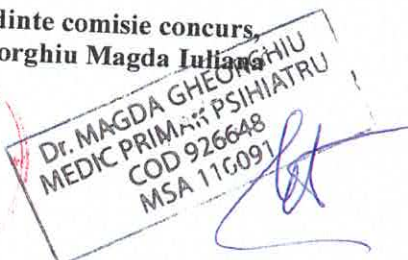 dinte comisie concurs,
orghiu Magda Iuliana
Dr. MAGDA GHEORGHIU
MEDIC PRIMAR PSIHIATRU
COD 926648
MSA 110091